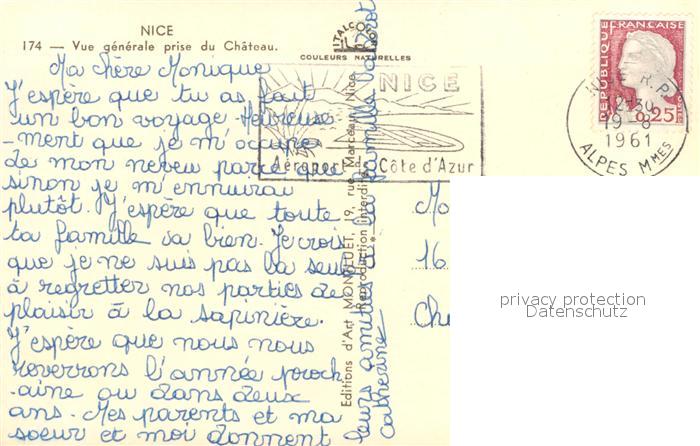 NICE
174 — Vue générale prise du Château.
ITALCOLOR
COULEURS NATURELLES
REPUBLIQUE FRANÇAISE
0,25
NICE R.P.
12H30
19-8
1961
ALPES MMES
NICE
Aéroport Côte d'Azur
Ma chère Monique
J'espère que tu as fait
un bon voyage. Heureuse-
-ment que je m'occupe
de mon neveu parce que
sinon je m'ennuirai
plutôt. J'espère que toute
ta famille va bien. Je crois
que je ne suis pas la seule
à regretter nos parties de
plaisir à la sapinière.
J'espère que nous nous
reverrons l'année proch
-aine ou dans deux
ans. Mes parents et ma
soeur et moi donnent
leurs amitiés à la famille
Catherine
Editions d'Art MONTLUET, 19, rue Marceau, Nice
Reproduction interdite
Mo
16
Che
privacy protection
Datenschutz